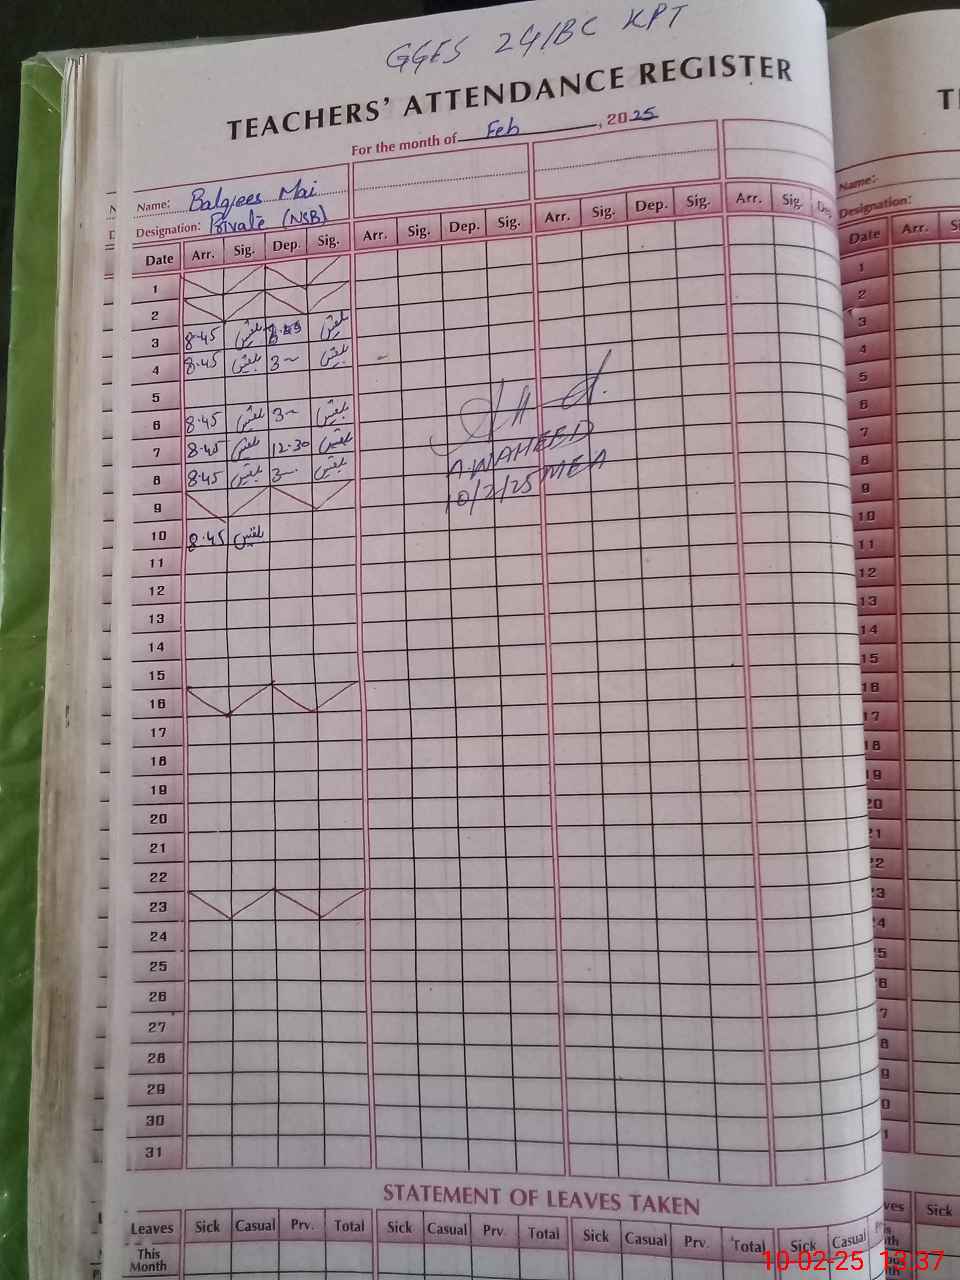 GGES 24/BC KPT
TEACHERS' ATTENDANCE REGISTER
For the month of Feb, 2025
Name: Balqees Mai
Designation: Private (NSB)
Date Arr. Sig. Dep. Sig. Arr. Sig. Dep. Sig. Arr. Sig. Dep. Sig. Arr. Sig.
1
2
3 8.45 بلقیس بلقیس
4 8.45 بلقیس 3 بلقیس
5
6 8.45 بلقیس 3 بلقیس
7 8.45 بلقیس 12.30 بلقیس
8 8.45 بلقیس 3 بلقیس
9
10 8.45 بلقیس
11
12
13
14
15
16
17
18
19
20
21
22
23
24
25
26
27
28
29
30
31
A.WAHEED
10/2/25 MEA
STATEMENT OF LEAVES TAKEN
Leaves Sick Casual Prv. Total Sick Casual Prv. Total Sick Casual Prv. Total Sick Casual
This Month
Name:
Designation:
Date Arr.
1
2
3
4
5
6
7
8
9
10
11
12
13
14
15
16
17
18
19
20
Sick
10-02-25 13:37